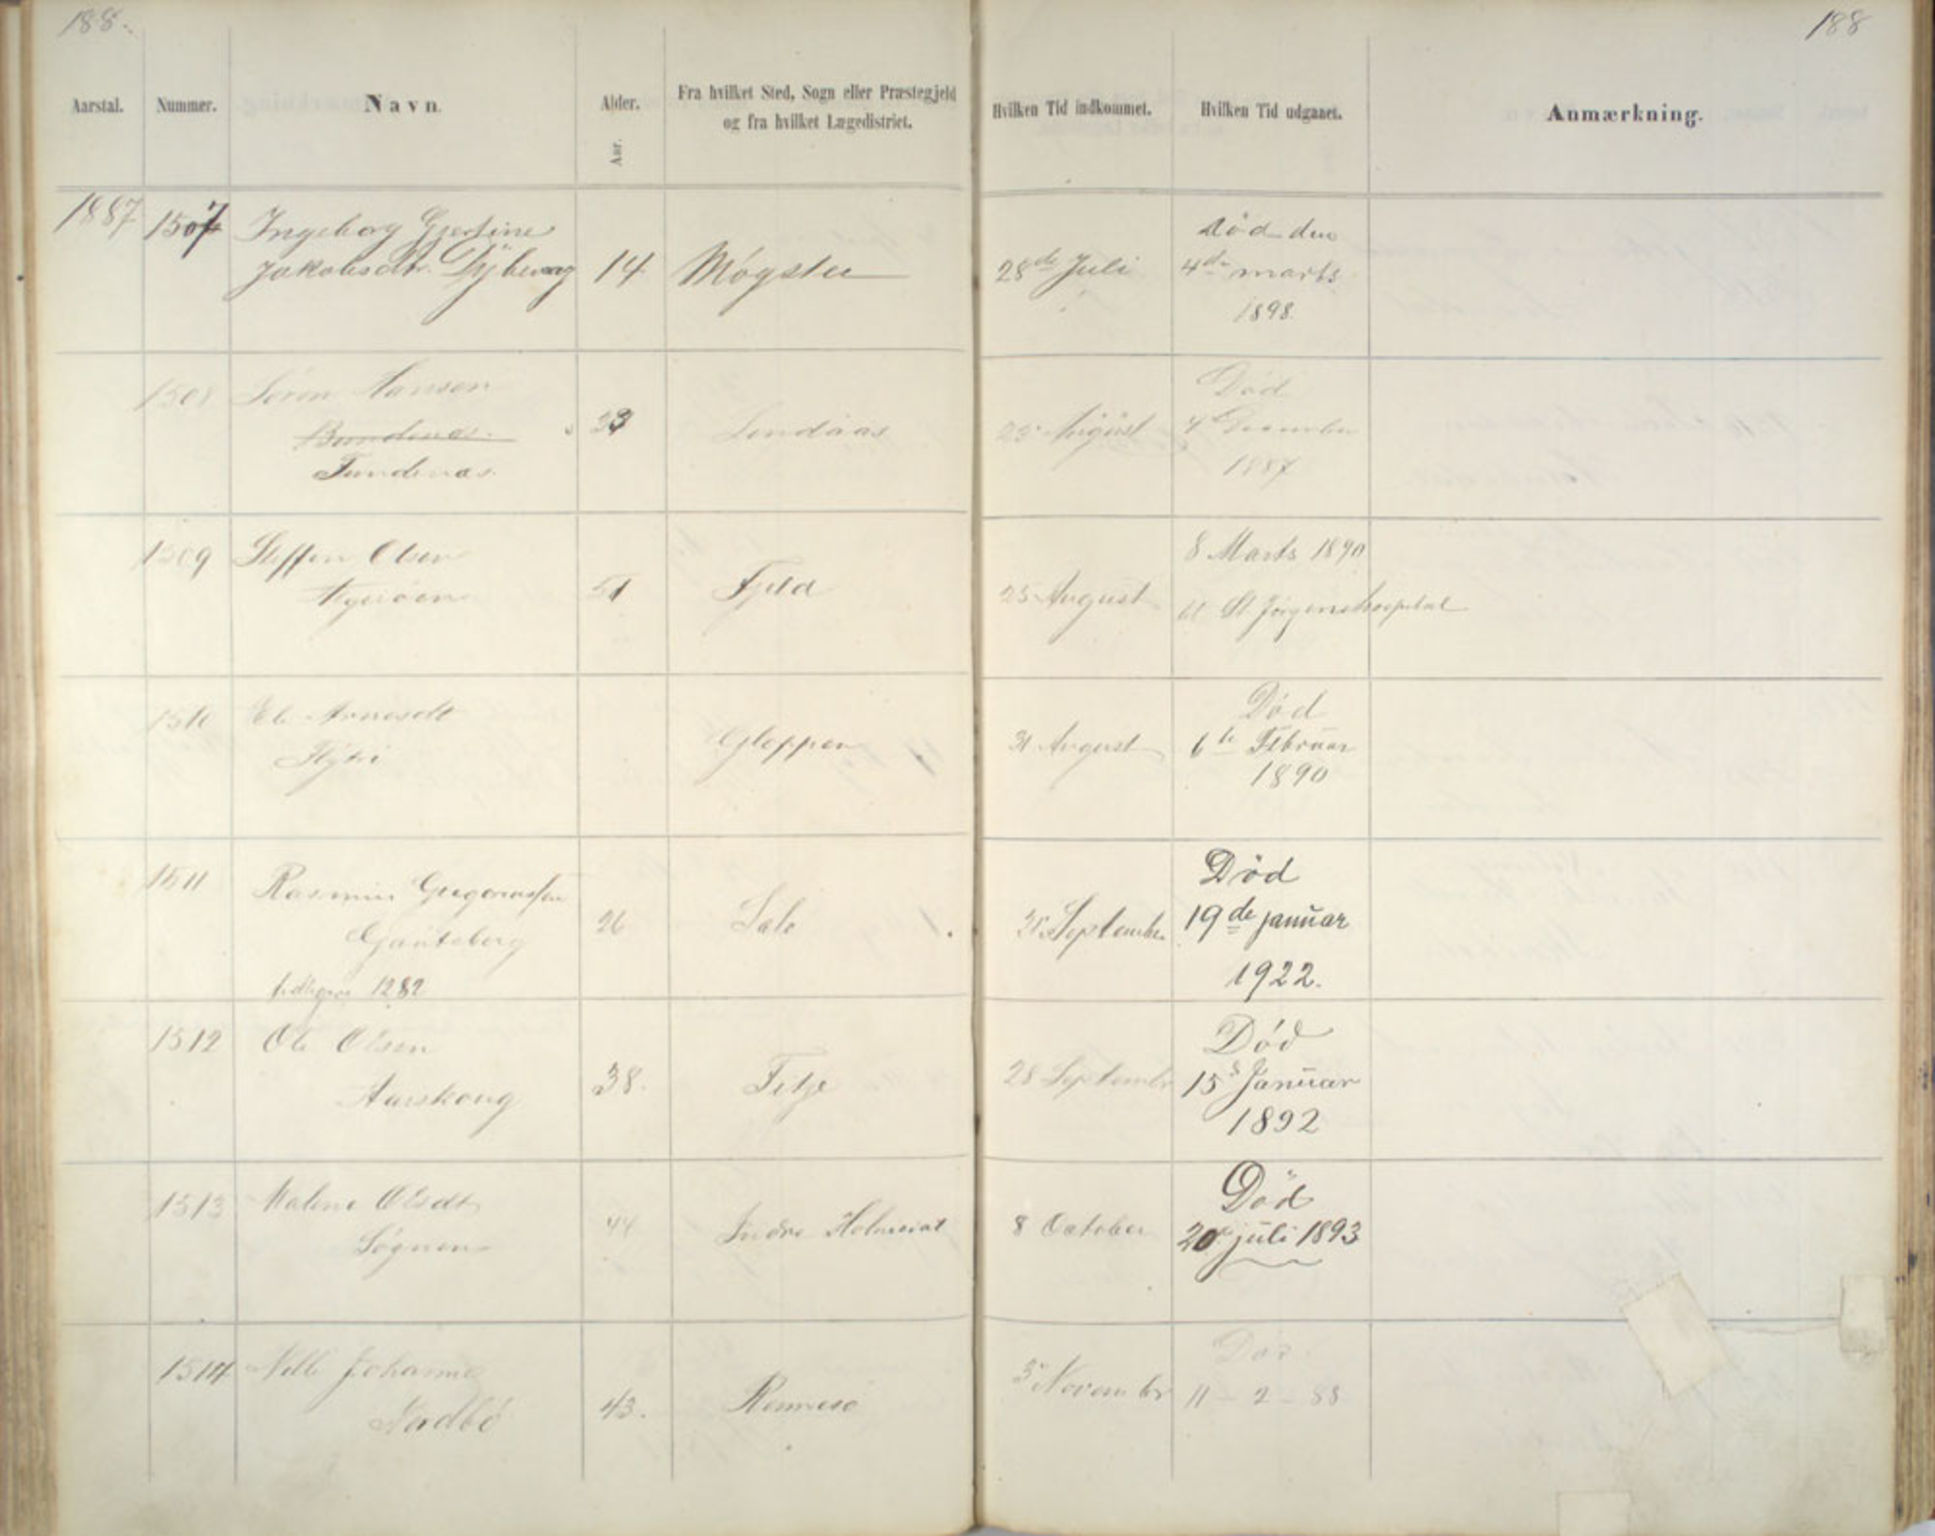 188.
188
Aarstal.
Nummer.
Navn.
Alder.
Aar.
Fra hvilket Sted, Sogn eller Præstegjeld
og fra hvilket Lægedistrict.
Hvilken Tid indkommet.
Hvilken Tid udgaaet.
Anmærkning.
1887
1507
Ingeborg Gjertine
Jakobsdtr.
14
Møgster
28de Juli
Død den
4de marts
1898.
1508
Sören Hansen
Tundenæs.
23
Lindaas
25 August
Død
4 December
1887
1509
Steffen Olsen
51
Fjeld
25 August
8 Marts 1890
til St. Jørgenshospital
1510
Eli Arnesdt
Fløtri
Gloppen
31 August
Død
6te Februar
1890
1511
Rasmus Gregoriussen
Gauteberg
1282
26
3 September
Död
19de januar
1922.
1512
Ole Olsen
Aarskoug
38.
Fitje
28 Septembr
Død
15de Januar
1892
1513
Malene Olsdt
Søgnen
44
Indre Holmedal
8 October
Död
20de juli 1893
1514
Nille Johanne
Nordbö
43.
Rennesø
3 Novembr
Død
11 - 2 - 88